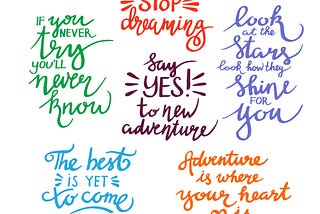 IF you
NEVER
try
you'll
never
know
STOP
dreaming
Say
YES!
to new
adventure
look
at the
stars
look how they
shine
FOR
you
The best
IS YET
to come
Adventure
is where
your heart